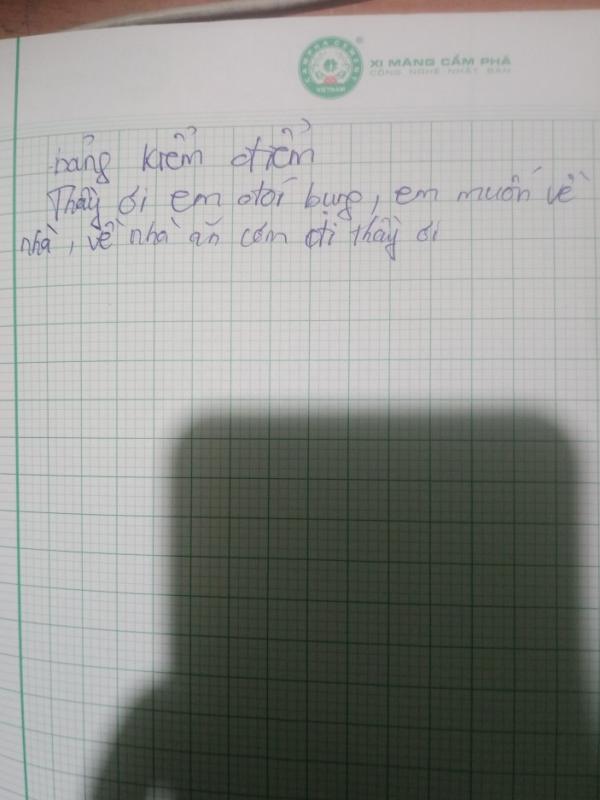 CAMPHA CEMENT
VIETNAM
XI MĂNG CẨM PHẢ
CÔNG NGHỆ NHẬT BẢN
bảng kiểm điểm
Thầy ơi em đói bụng, em muốn về
nhà, về nhà ăn cơm đi thầy ơi